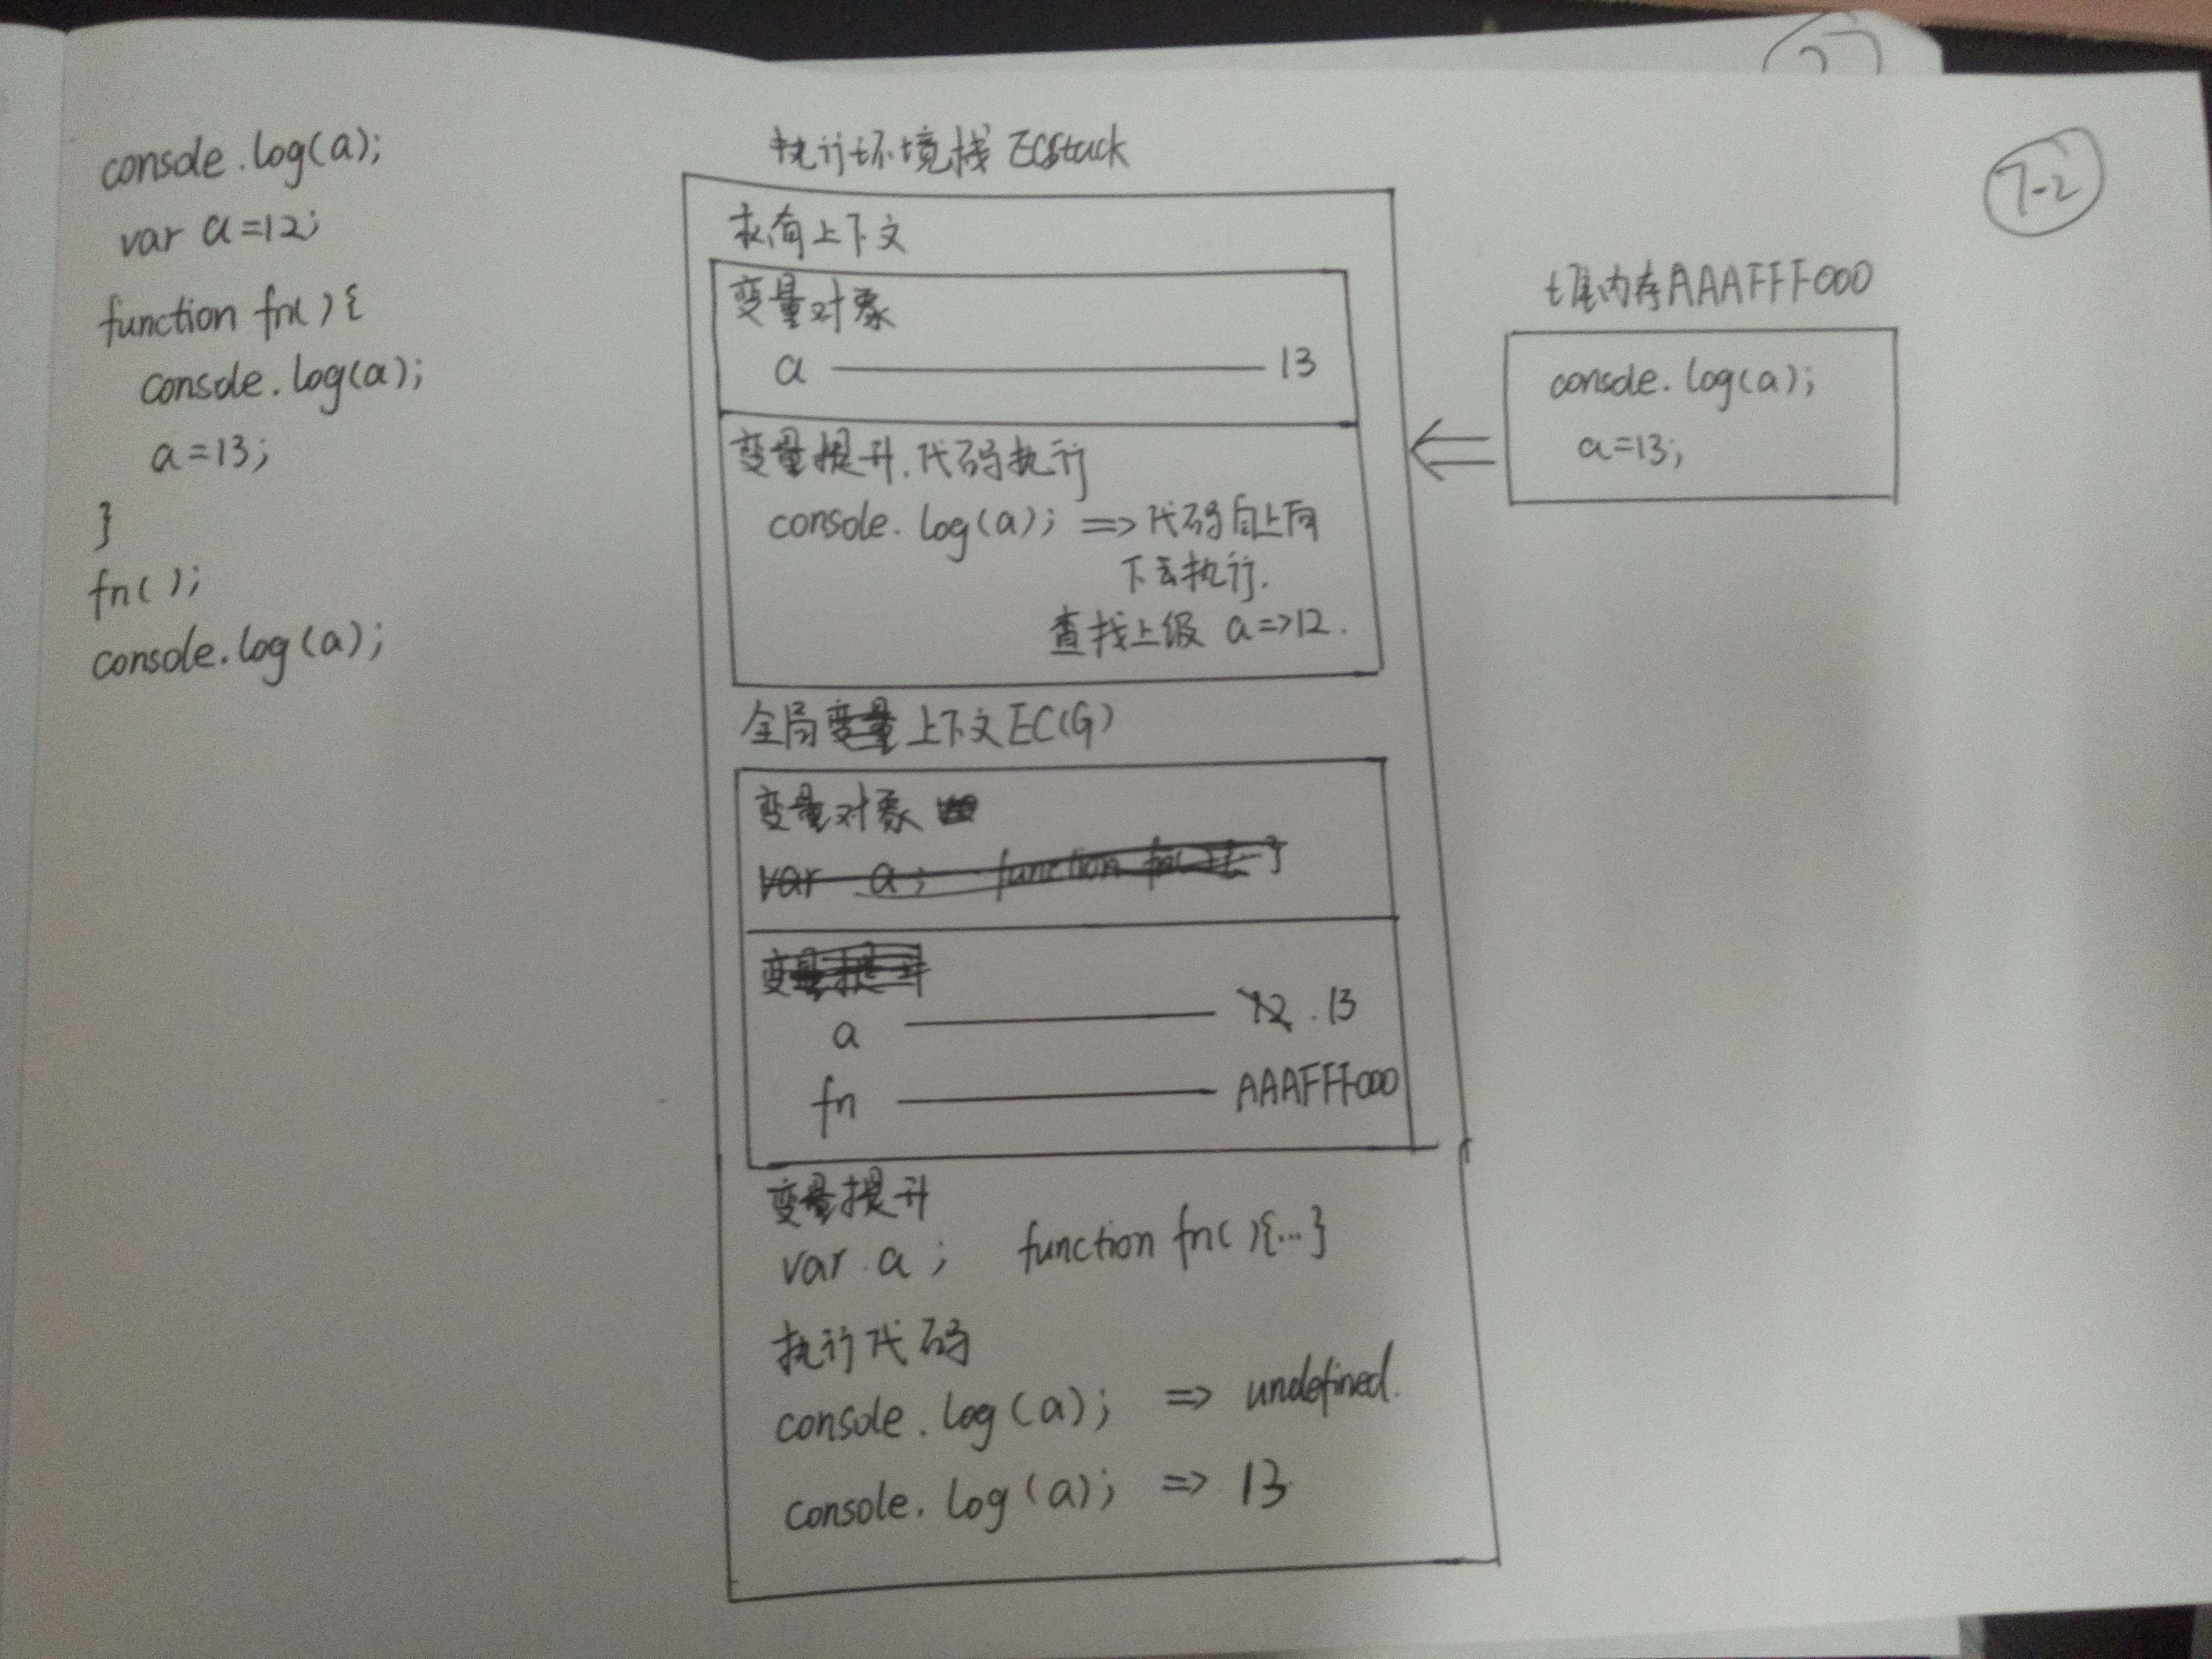 console.log(a);
var a=12;
function fn(){
console.log(a);
a=13;
}
fn();
console.log(a);
执行环境栈 ECStack
私有上下文
变量对象
a 13
变量提升.代码执行
console.log(a); => 代码自上向
下去执行.
查找上级 a=>12.
全局变量上下文 EC(G)
变量对象
var a; function fn(){...}
变量提升
a 12.13
fn AAAFFF000
变量提升
var a; function fn(){...}
执行代码
console.log(a); => undefined.
console.log(a); => 13
堆内存AAAFFF000
console.log(a);
a=13;
7-2